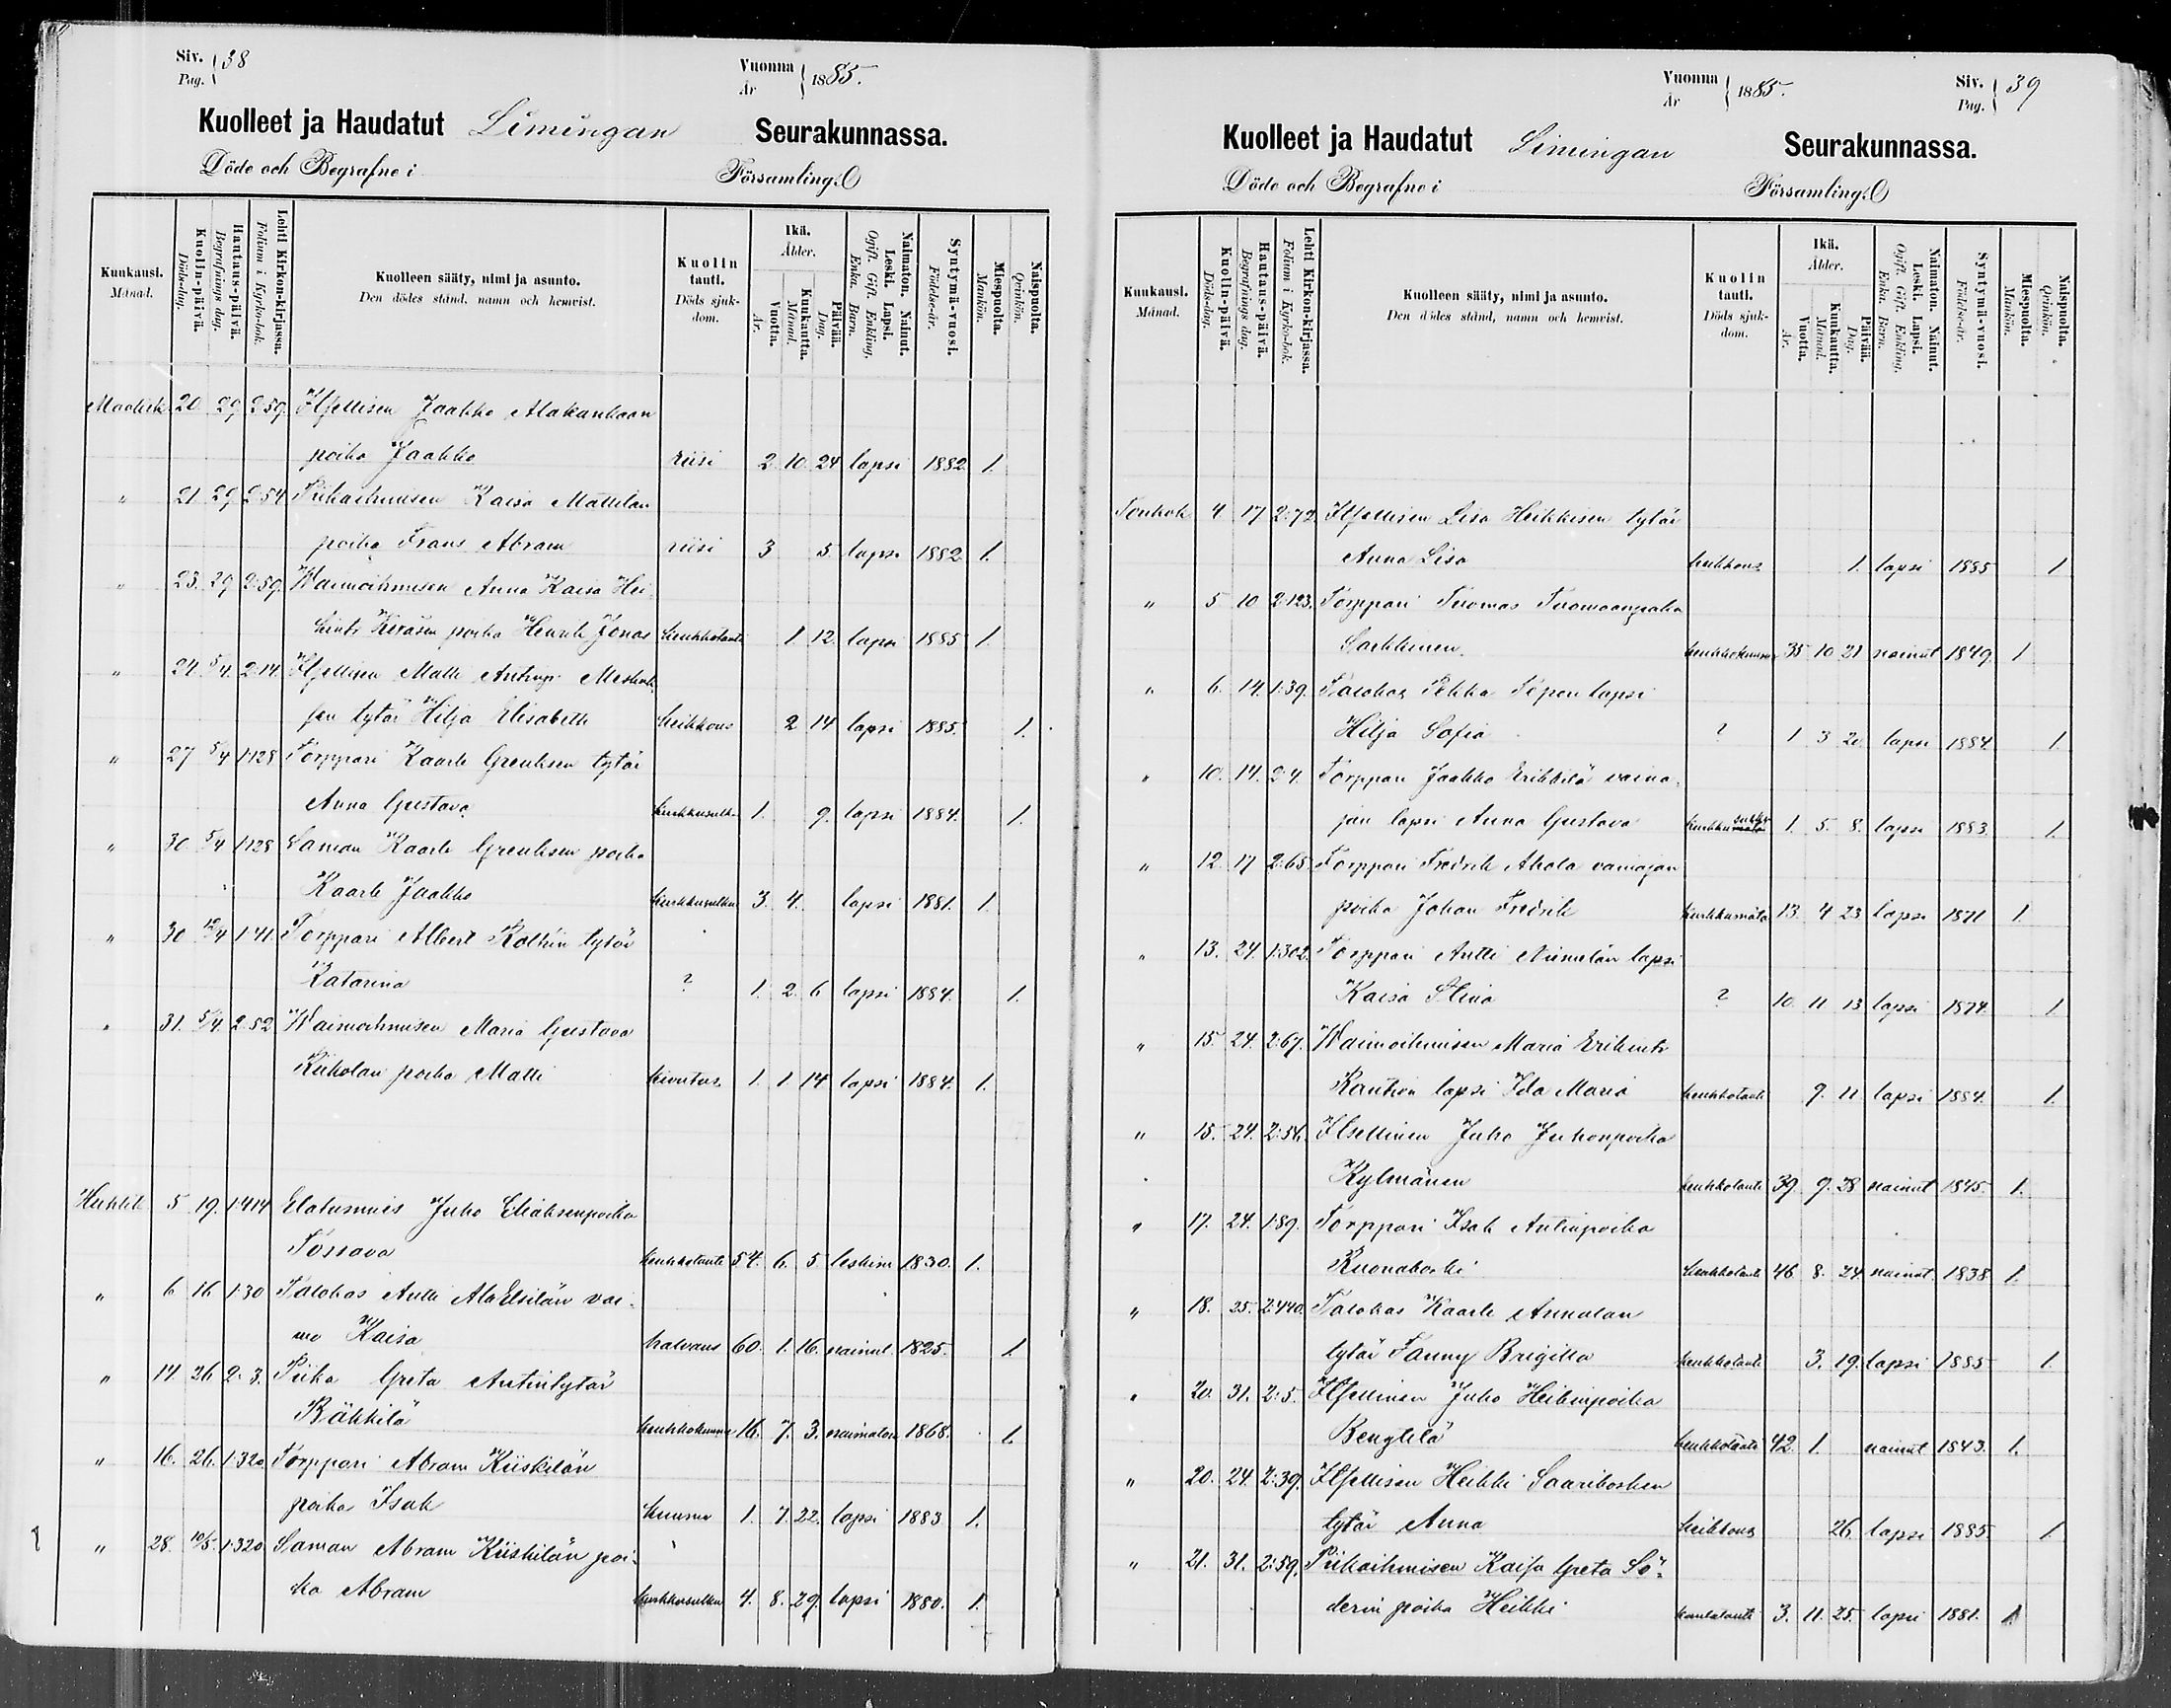 Siv. Pag. 38
Vuonna År 1885.
Kuolleet ja Haudatut Limingan Seurakunnassa.
Döde och Begrafne i Församling.
Kuukausi. Månad.
Kuolin-päivä. Döds-dag.
Hautaus-päivä. Begrafnings dag.
Lehti Kirkon-kirjassa. Folium i Kyrko-bok.
Kuolleen sääty, nimi ja asunto. Den dödes stånd, namn och hemvist.
Kuolin tauti. Döds sjuk-dom.
Ikä. Ålder.
Vuotta. År.
Kuukautta. Månad.
Päivää. Dag.
Naimaton. Nainut. Leski. Lapsi. Ogift. Gift. Enkling. Enka. Barn.
Syntymä-vuosi. Födelse-år.
Miespuolta. Mankön.
Naispuolta. Qvinkön.
20. 29 2:59. Itsellisen Jaakko
poika Jaakko riisi 2 10 24 lapsi 1882. 1.
" 21 29 2:54 Piikaihmisen Kaisa Mattilan
poika Frans Abram riisi 3 5 lapsi 1882. 1.
" 23. 29 2:59. Waimoihmisen Anna Kaisa Hei
Keräsen poika Henrik Jonas keuhkotauti 1 12. lapsi 1885 1.
" 24 5/4. 2:14. Itsellisen Matti
sen tytär Hilja Elisabeth heikkous 2 14 lapsi 1885. 1.
" 27 5/4 1:128 Torppari Kaarle tytär
Anna Gustava kurkkusulk. 1. 9. lapsi 1884. 1.
" 30. 5/4 1:128 Saman Kaarle poika
Kaarle Jaakko kurkkusulku 3. 4. lapsi 1881. 1.
" 30 12/4 1:41. Torppari Albert tytär
Katarina ? 1. 2. 6 lapsi 1884. 1.
" 31. 5/4. 2:52 Waimoihmisen Maria Gustava
poika Matti 1. 1 14 lapsi 1884. 1.
Huhtik. 5 19. 1:414 Elatusmies Juho
Tossava keuhkotauti 54. 6. 5 leskim 1830. 1.
" 6 16 1:30 Talokas Antti vai-
mo Kaisa halvaus 60. 1. 16. nainut. 1825. 1.
" 14 26 2:3. Piika Greta Antintytär
Räkkilä keuhkokuume 16. 7. 3. naimaton 1868. 1.
" 16. 26. 1:320. Torppari Abram Kiiskilän
poika Isak kuume 1. 7. 22. lapsi 1883 1.
" 28. 10/5. 1:320 Saman Abram Kiiskilän poi-
ka Abram kurkkusulku 4. 8. 29. lapsi 1880. 1.
Vuonna År 1885.
Siv. Pag. 39
Kuolleet ja Haudatut Limingan Seurakunnassa.
Döde och Begrafne i Församling.
Kuukausi. Månad.
Kuolin-päivä. Döds-dag.
Hautaus-päivä. Begrafnings dag.
Lehti Kirkon-kirjassa. Folium i Kyrko-bok.
Kuolleen sääty, nimi ja asunto. Den dödes stånd, namn och hemvist.
Kuolin tauti. Döds sjuk-dom.
Ikä. Ålder.
Vuotta. År.
Kuukautta. Månad.
Päivää. Dag.
Naimaton. Nainut. Leski. Lapsi. Ogift. Gift. Enkling. Enka. Barn.
Syntymä-vuosi. Födelse-år.
Miespuolta. Mankön.
Naispuolta. Qvinkön.
Toukok 4. 17 2:72. Itsellisen Lisa Heikkisen tytär
Anna Lisa heikkous 1. lapsi 1885 1
" 5 10 2:123. Torppari Tuomas Tuomaanpoika
Sarkkinen. keuhkokuume 35 10 21 nainut 1849. 1
" 6. 14. 1:39. Talokas Pekka lapsi
Hilja Sofia ? 1 3 20 lapsi 1884. 1.
" 10. 14. 2:4. Torppari Jaakko Erikkilä vaina-
jan lapsi Anna Gustava kurkkusulku 1. 5. 8. lapsi 1883. 1.
" 12. 17 2:65. Torppari Fredrik Ahola vainajan
poika Johan Fredrik kurkkumätä 13. 4 23 lapsi 1871 1.
" 13. 24. 1:302. Torppari Antti Niemelän lapsi
Kaisa Stina ? 10. 11 13 lapsi 1874. 1
" 15. 24. 2:67. Waimoihmisen Maria
Raution lapsi Ida Maria keuhkotauti 9. 11 lapsi 1884. 1.
" 15. 24. 2:56. Itsellinen Juho Juhonpoika
Kylmänen keuhkotauti 39. 9. 28 nainut 1845. 1.
" 17. 24. 1:89. Torppari Isak Antinpoika
Ruonakoski keuhkotauti 46 8. 24 nainut 1838. 1.
" 18. 25. 2:440. Talokas Kaarle Annalan
tytär Fanny Brigitta keuhkotauti 3. 19. lapsi 1885 1.
" 20. 31. 2:5. Itsellinen Juho Heikinpoika
Bengtilä keuhkotauti 42. 1. nainut 1843. 1.
" 20. 24. 2:39. Itsellisen Heikki Saarikosken
tytär Anna heikkous 26. lapsi 1885 1
" 21. 31. 2:59. Piikaihmisen Kaisa Greta Sö-
derin poika Heikki 3. 11. 25. lapsi 1881. 1